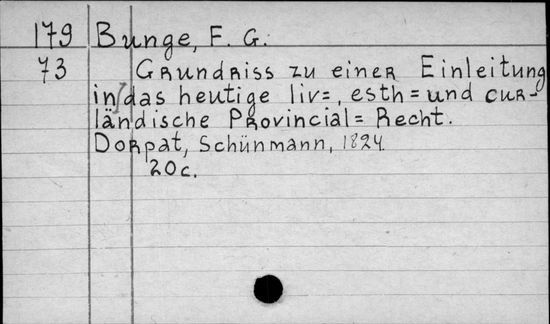 179 Bunge, F. G.
73 Grundriss zu einer Einleitung
in das heutige liv=, esth= und cur-
ländische Provincial=Recht.
Dorpat, Schünmann, 1824.
20c.